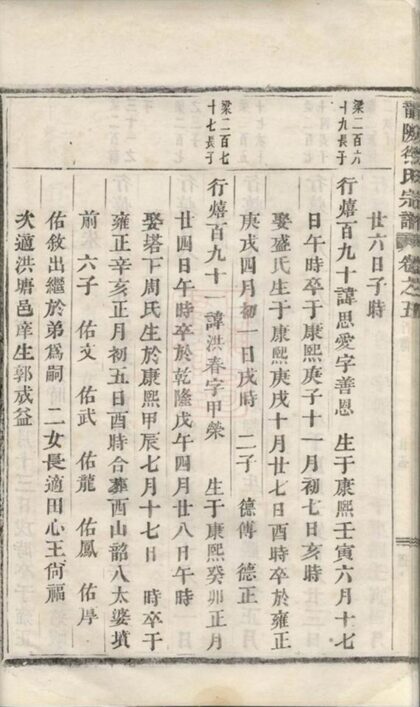 韶陂
氏宗譜
卷之五
廿六日子時
梁二百六
十九長子
行熺百九十諱思愛字善恩 生于康熙壬寅六月十七
日午時卒于康熙庚子十一月初七日亥時
娶盛氏生于康熙庚戌十月廿七日酉時卒於雍正
庚戌四月初一日戌時 二子 德傅 德正
梁二百七
十七長子
行熺百九十一諱洪春字甲榮 生于康熙癸卯正月
廿四日午時卒於乾隆戊午四月廿八日午時
娶塔下周氏生於康熙甲辰七月十七日 時卒于
雍正辛亥正月初五日酉時合葬西山韶八太婆墳
前 六子 佑文 佑武 佑龍 佑鳳 佑厚
佑敘出繼於弟爲嗣 二女長適田心王尙福
次適洪塘邑庠生郭成益